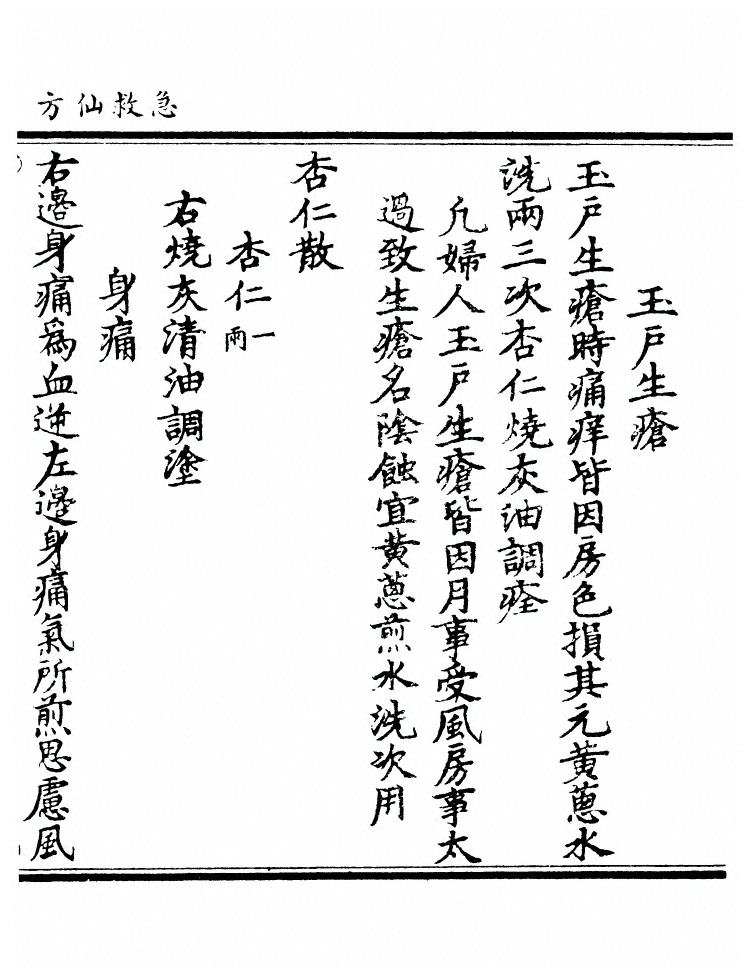 急救仙方
玉戸生瘡
玉戸生瘡時痛痒皆因房色損其元黄蔥水
洗兩三次杏仁燒灰油調痊
凢婦人玉戸生瘡皆因月事受風房事太
過致生瘡名陰蝕宜黄蔥煎水洗次用
杏仁散
杏仁一兩
右燒灰清油調塗
身痛
右邉身痛為血逆左邉身痛氣所煎思慮風